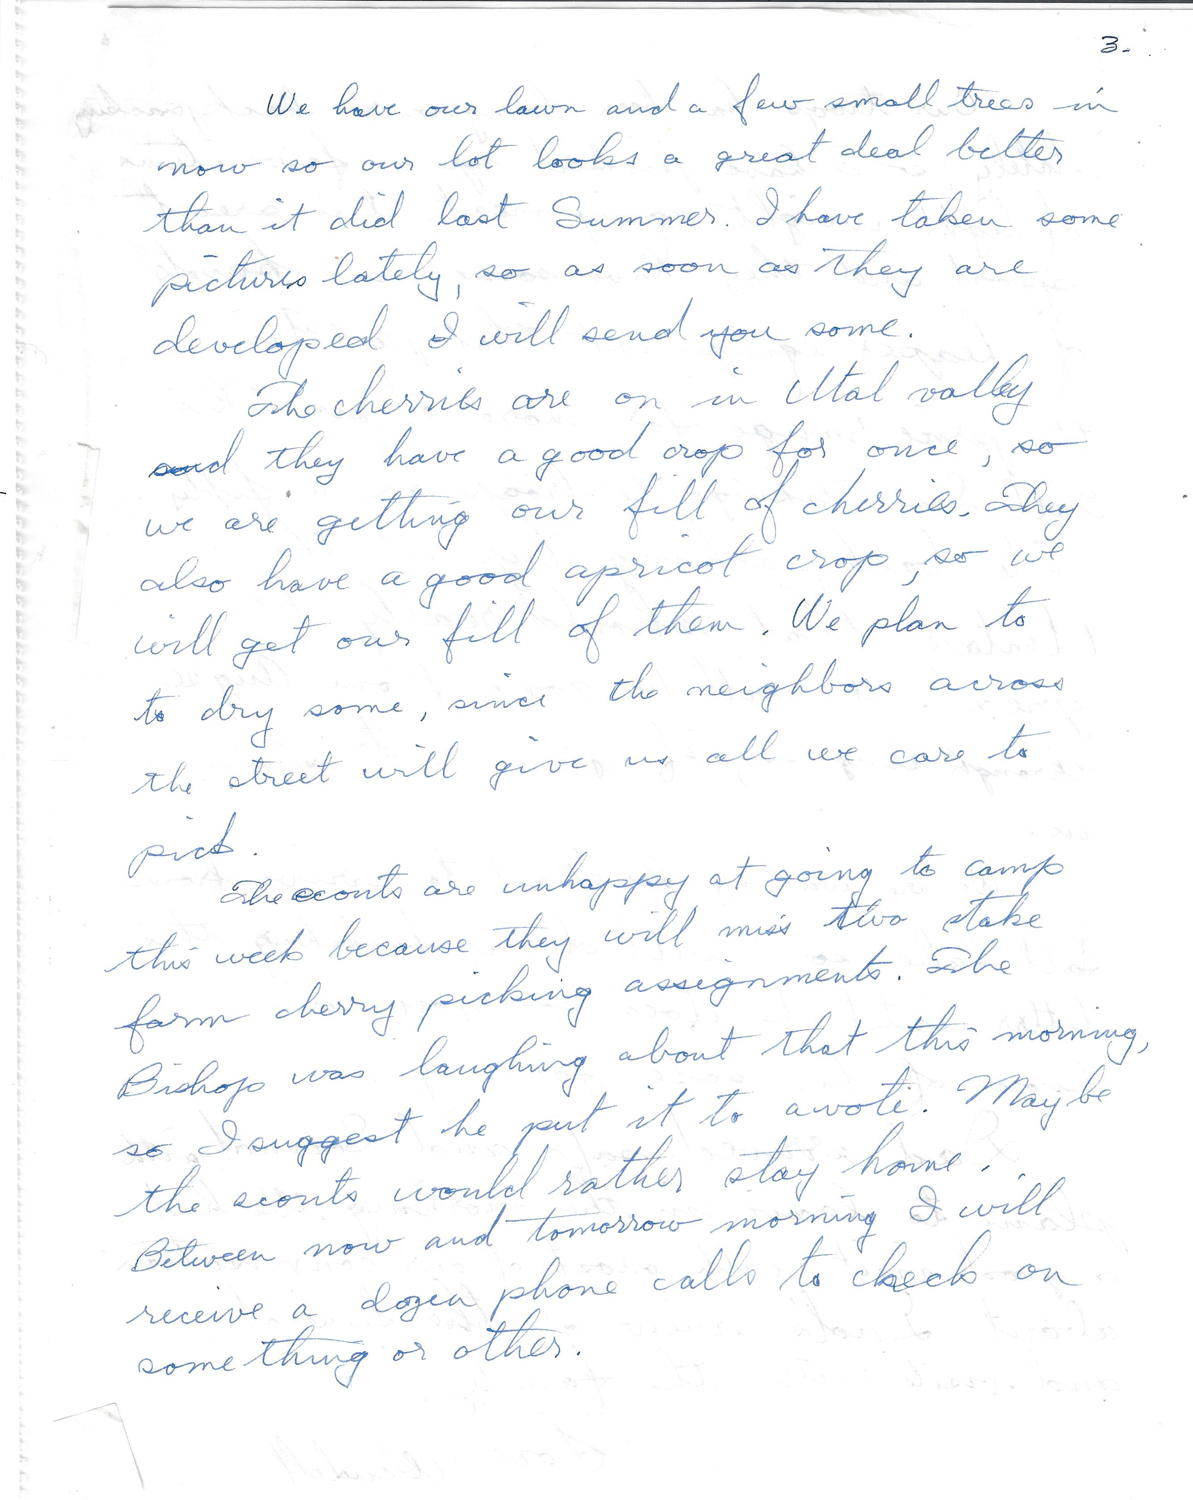 3.
We have our lawn and a few small trees in
now so our lot looks a great deal better
than it did last Summer. I have taken some
pictures lately, so as soon as they are
developed I will send you some.
The cherries are on in Utal valley
and they have a good crop for once, so
we are getting our fill of cherries. They
also have a good apricot crop, so we
will get our fill of them. We plan to
to dry some, since the neighbors across
the street will give us all we care to
pick.
The scouts are unhappy at going to camp
this week because they will miss two stake
farm cherry picking assignments. The
Bishop was laughing about that this morning,
so I suggest he put it to a vote. Maybe
the scouts would rather stay home.
Between now and tomorrow morning I will
receive a dozen phone calls to check on
something or other.